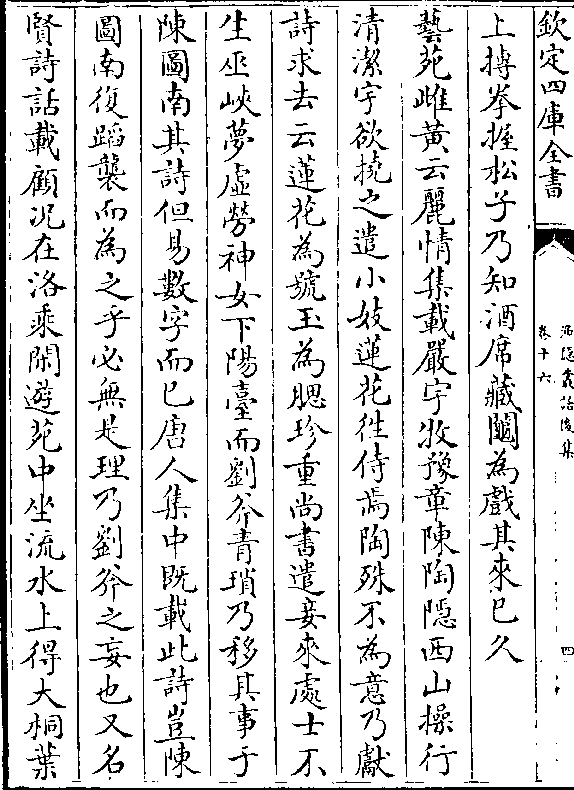 欽定四庫全書
漁隱叢話後集
卷十六
四
上搏拳握松子乃知酒席藏鬮為戲其來已久
藝苑雌黃云麗情集載嚴宇牧豫章陳陶隱西山操行
清潔宇欲撓之遣小妓蓮花徃侍焉陶殊不為意乃獻
詩求去云蓮花為號玉為腮珍重尚書遣妾來處士不
生巫峽夢虛勞神女下陽臺而劉斧青瑣乃移其事于
陳圖南其詩但易數字而已唐人集中既載此詩豈陳
圖南復蹈襲而為之乎必無是理乃劉斧之妄也又名
賢詩話載顧況在洛乘閑遊苑中坐流水上得大桐葉